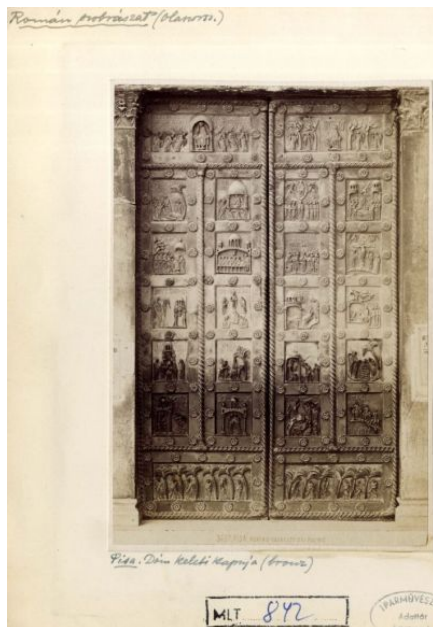 Román szobrászat (olaszors.)
Pisa. Dóm keleti kapuja (bronz)
MLT 842
IPARMŰVÉSZ
Adattár